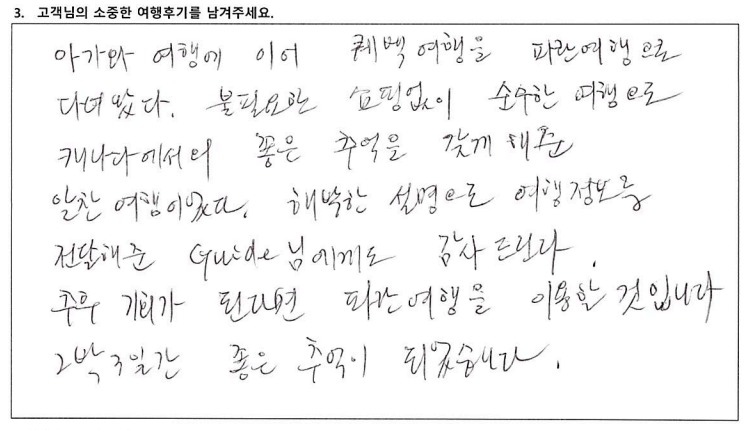 3. 고객님의 소중한 여행후기를 남겨주세요.
아가와 여행에 이어 퀘백여행을 파란여행으로
다녀왔다. 불필요한 쇼핑없이 순수한 여행으로
캐나다에서의 좋은 추억을 갖게 해준
알찬 여행이었다. 해박한 설명으로 여행정보를
전달해준 Guide님에게도 감사드린다.
추후 기회가 된다면 파란여행을 이용할 것입니다
2박3일간 좋은 추억이 되었습니다.